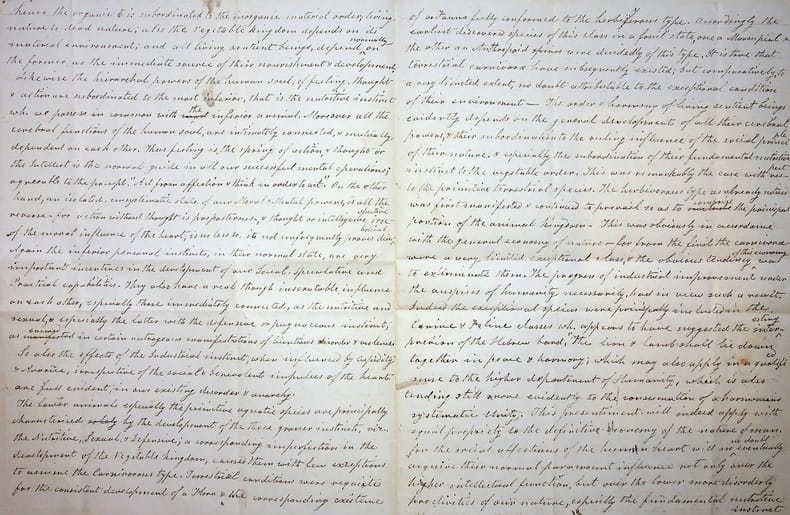 hence the organic is subordinated to the inorganic material order; living
nature to dead nature; also the Vegetable kingdom depends on its
normally
material environment; and all living sentient beings, depend on
the former, as the immediate source of their nourishment & development.
Likewise the hierarchal powers of the human soul, of feeling, thought
& action are subordinated to the most inferior, that is the nutritive instinct
wh. we possess in common with the inferior animal. Moreover all the
cerebral functions of the human soul, are intimately connected, & mutually
dependent on each other. Thus feeling is the spring of action & thought or
the Intellect is the normal guide in all our successful mental operations;
agreeable to the precept, "Act from affection & think in order to act. On the other
hand, an isolated, unsystematic state of our Moral & Mental powers, is all the
reverse - for action without thought is preposterous, & thought or intelligence
of the moral influence of the heart, is no less so, its not unfrequently proves
Again the inferior personal instincts, in their normal state, are very
important incentives in the development of our Social, Speculative and
Practical capabilities. They also have a real though inscrutable influence
on each other, especially those immediately connected, as the nutritive and
sexual, & especially the latter with the defensive or pugnacious instinct,
as in certain outrageous manifestations of disorder & violence
So also the effects of the Industrial instinct, when influenced by cupidity
& Avarice, irrespective of the social & benevolent impulses of the heart
are full evident, in our existing disorder & anarchy.
The lower animals especially the primitive aquatic species are principally
characterised by the development of the three grosser instincts, viz.
the Nutritive, Sexual, & Defensive; a corresponding imperfection in the
development of the Vegetable kingdom, causes them with few exceptions
to assume the Carnivorous type. Terrestrial conditions were requisite
for the consistent development of a Flora & the corresponding existence
of a Fauna fully conformed to the herbiferous type. Accordingly the
earliest discovered species of this class in a fossil state, one a Marsupial &
the other an Anthropoid were decidedly of this type. It is true that
terrestrial carnivora have subsequently existed, but comparatively to
a very limited extent, no doubt attributable to the exceptional condition
of their environment - The order & harmony of living sentient beings
evidently depends on the general development of all their cerebral
powers, & their subordination to the ruling influence of the social principle
of their nature. & especially the subordination of their fundamental nutritive
instinct to the vegetable order. This was remarkably the case with respect
to the primitive terrestrial species. The herbiverous type as already noticed
was first manifested & continued to prevail so as to the principal
portion of the animal kingdom - This was obviously in accordance
with the general economy of nature - for from the first the carnivora
of this economy
were a very limited exceptional class, & the obvious tendency was
to exterminate them. The progress of industrial improvement under
the auspices of humanity necessarily, has in view such a result.
Indeed the exceptional species were principally included in the
Canine & Feline classes wh. appears to have suggested the interesting
prevision of the Hebrew bard, "The lion & lamb shall lie down
together in peace & harmony; which may also apply in a qualified
sense to the higher department of Humanity, which is also
tending still more evidently to the consumation of a harmonious
systematic Unity. This presentiment will indeed apply with
equal propriety to the definitive economy of the nature of man.
for the social affections of the human heart will no doubt eventually
acquire their normal paramount influence not only over the
higher intellectual function, but over the lower more disorderly
proclivities of our nature, especially the fundamental nutritive
instinct